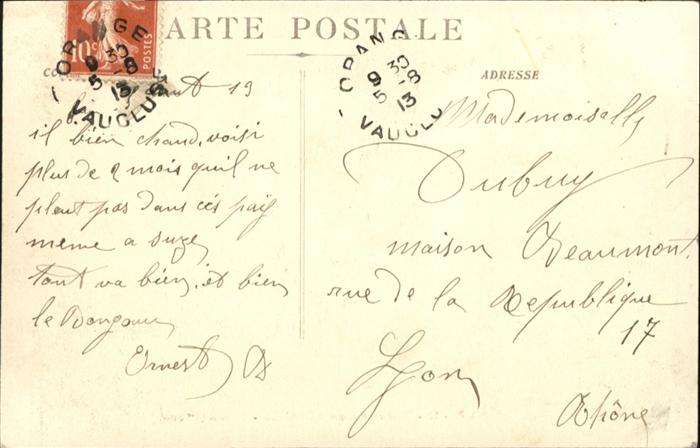 CARTE POSTALE
ADRESSE
ORANGE
9 30
5-8
13
VAUCLUSE
10c
POSTES
19
il bien chaud, voisi
plus de 2 mois quil ne
pleut pas dans ces pays
meme a suze
tout va bien. et bien
le Bonjour
Ernest
ORANG
9 30
5-8
13
VAUCLU
Mademoiselle
Dubuy
maison Beaumont
rue de la Republique
17
Lyon
Rhône